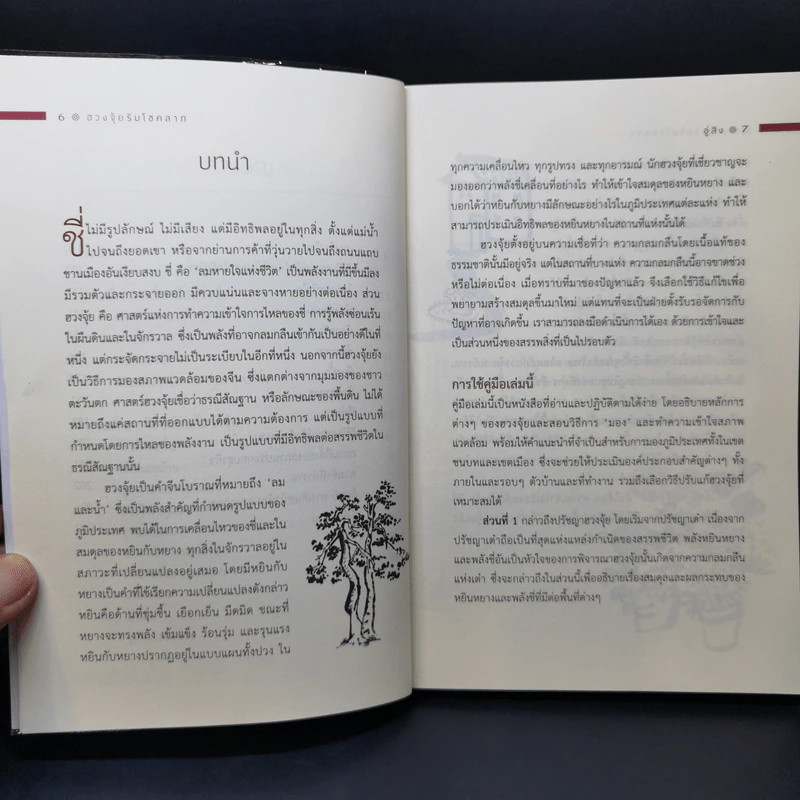 6 ๏ ฮวงจุ้ยรับโชคลาภ
บทนำ
ชี่ ไม่มีรูปลักษณ์ ไม่มีเสียง แต่มีอิทธิพลอยู่ในทุกสิ่ง ตั้งแต่แม่น้ำ
ไปจนถึงยอดเขา หรือจากย่านการค้าที่วุ่นวายไปจนถึงถนนแถบ
ชานเมืองอันเงียบสงบ ชี่ คือ ‘ลมหายใจแห่งชีวิต’ เป็นพลังงานที่มีขึ้นมีลง
มีรวมตัวและกระจายออก มีควบแน่นและจางหายอย่างต่อเนื่อง ส่วน
ฮวงจุ้ย คือ ศาสตร์แห่งการทำความเข้าใจการไหลของชี่ การรู้พลังซ่อนเร้น
ในผืนดินและในจักรวาล ซึ่งเป็นพลังที่อาจกลมกลืนเข้ากันเป็นอย่างดีในที่
หนึ่ง แต่กระจัดกระจายไม่เป็นระเบียบในอีกที่หนึ่ง นอกจากนี้ฮวงจุ้ยยัง
เป็นวิธีการมองสภาพแวดล้อมของจีน ซึ่งแตกต่างจากมุมมองของชาว
ตะวันตก ศาสตร์ฮวงจุ้ยเชื่อว่าธรณีสัณฐาน หรือลักษณะของพื้นดิน ไม่ได้
หมายถึงแค่สถานที่ที่ออกแบบได้ตามความต้องการ แต่เป็นรูปแบบที่
กำหนดโดยการไหลของพลังงาน เป็นรูปแบบที่มีอิทธิพลต่อสรรพชีวิตใน
ธรณีสัณฐานนั้น
ฮวงจุ้ยเป็นคำจีนโบราณที่หมายถึง ‘ลม
และน้ำ’ ซึ่งเป็นพลังสำคัญที่กำหนดรูปแบบของ
ภูมิประเทศ พบได้ในการเคลื่อนไหวของชี่และใน
สมดุลของหยินกับหยาง ทุกสิ่งในจักรวาลอยู่ใน
สภาวะที่เปลี่ยนแปลงอยู่เสมอ โดยมีหยินกับ
หยางเป็นคำที่ใช้เรียกความเปลี่ยนแปลงดังกล่าว
หยินคือด้านที่ชุ่มชื้น เยือกเย็น มืดมิด ขณะที่
หยางจะทรงพลัง เข้มแข็ง ร้อนรุ่ม และรุนแรง
หยินกับหยางปรากฏอยู่ในแบบแผนทั้งปวง ใน
อู่สิง ๏ 7
ทุกความเคลื่อนไหว ทุกรูปทรง และทุกอารมณ์ นักฮวงจุ้ยที่เชี่ยวชาญจะ
มองออกว่าพลังชี่เคลื่อนที่อย่างไร ทำให้เข้าใจสมดุลของหยินหยาง และ
บอกได้ว่าหยินกับหยางมีลักษณะอย่างไรในภูมิประเทศแต่ละแห่ง ทำให้
สามารถประเมินอิทธิพลของหยินหยางในสถานที่แห่งนั้นได้
ฮวงจุ้ยตั้งอยู่บนความเชื่อที่ว่า ความกลมกลืนโดยเนื้อแท้ของ
ธรรมชาตินั้นมีอยู่จริง แต่ในสถานที่บางแห่ง ความกลมกลืนนี้อาจขาดช่วง
หรือไม่ต่อเนื่อง เมื่อทราบที่มาของปัญหาแล้ว จึงเลือกใช้วิธีแก้ไขเพื่อ
พยายามสร้างสมดุลขึ้นมาใหม่ แต่แทนที่จะเป็นฝ่ายตั้งรับรอจัดการกับ
ปัญหาที่อาจเกิดขึ้น เราสามารถลงมือดำเนินการได้เอง ด้วยการเข้าใจและ
เป็นส่วนหนึ่งของสรรพสิ่งที่เป็นไปรอบตัว
การใช้คู่มือเล่มนี้
คู่มือเล่มนี้เป็นหนังสือที่อ่านและปฏิบัติตามได้ง่าย โดยอธิบายหลักการ
ต่างๆ ของฮวงจุ้ยและสอนวิธีการ ‘มอง’ และทำความเข้าใจสภาพ
แวดล้อม พร้อมให้คำแนะนำที่จำเป็นสำหรับการมองภูมิประเทศทั้งในเขต
ชนบทและเขตเมือง ซึ่งจะช่วยให้ประเมินองค์ประกอบสำคัญต่างๆ ทั้ง
ภายในและรอบๆ ตัวบ้านและที่ทำงาน รวมถึงเลือกวิธีปรับแก้ฮวงจุ้ยที่
เหมาะสมได้
ส่วนที่ 1 กล่าวถึงปรัชญาฮวงจุ้ย โดยเริ่มจากปรัชญาเต๋า เนื่องจาก
ปรัชญาเต๋าถือเป็นที่สุดแห่งแหล่งกำเนิดของสรรพชีวิต พลังหยินหยาง
และพลังชี่อันเป็นหัวใจของการพิจารณาฮวงจุ้ยนั้นเกิดจากความกลมกลืน
แห่งเต๋า ซึ่งจะกล่าวถึงในส่วนนี้เพื่ออธิบายเรื่องสมดุลและผลกระทบของ
หยินหยางและพลังชี่ที่มีต่อพื้นที่ต่างๆ